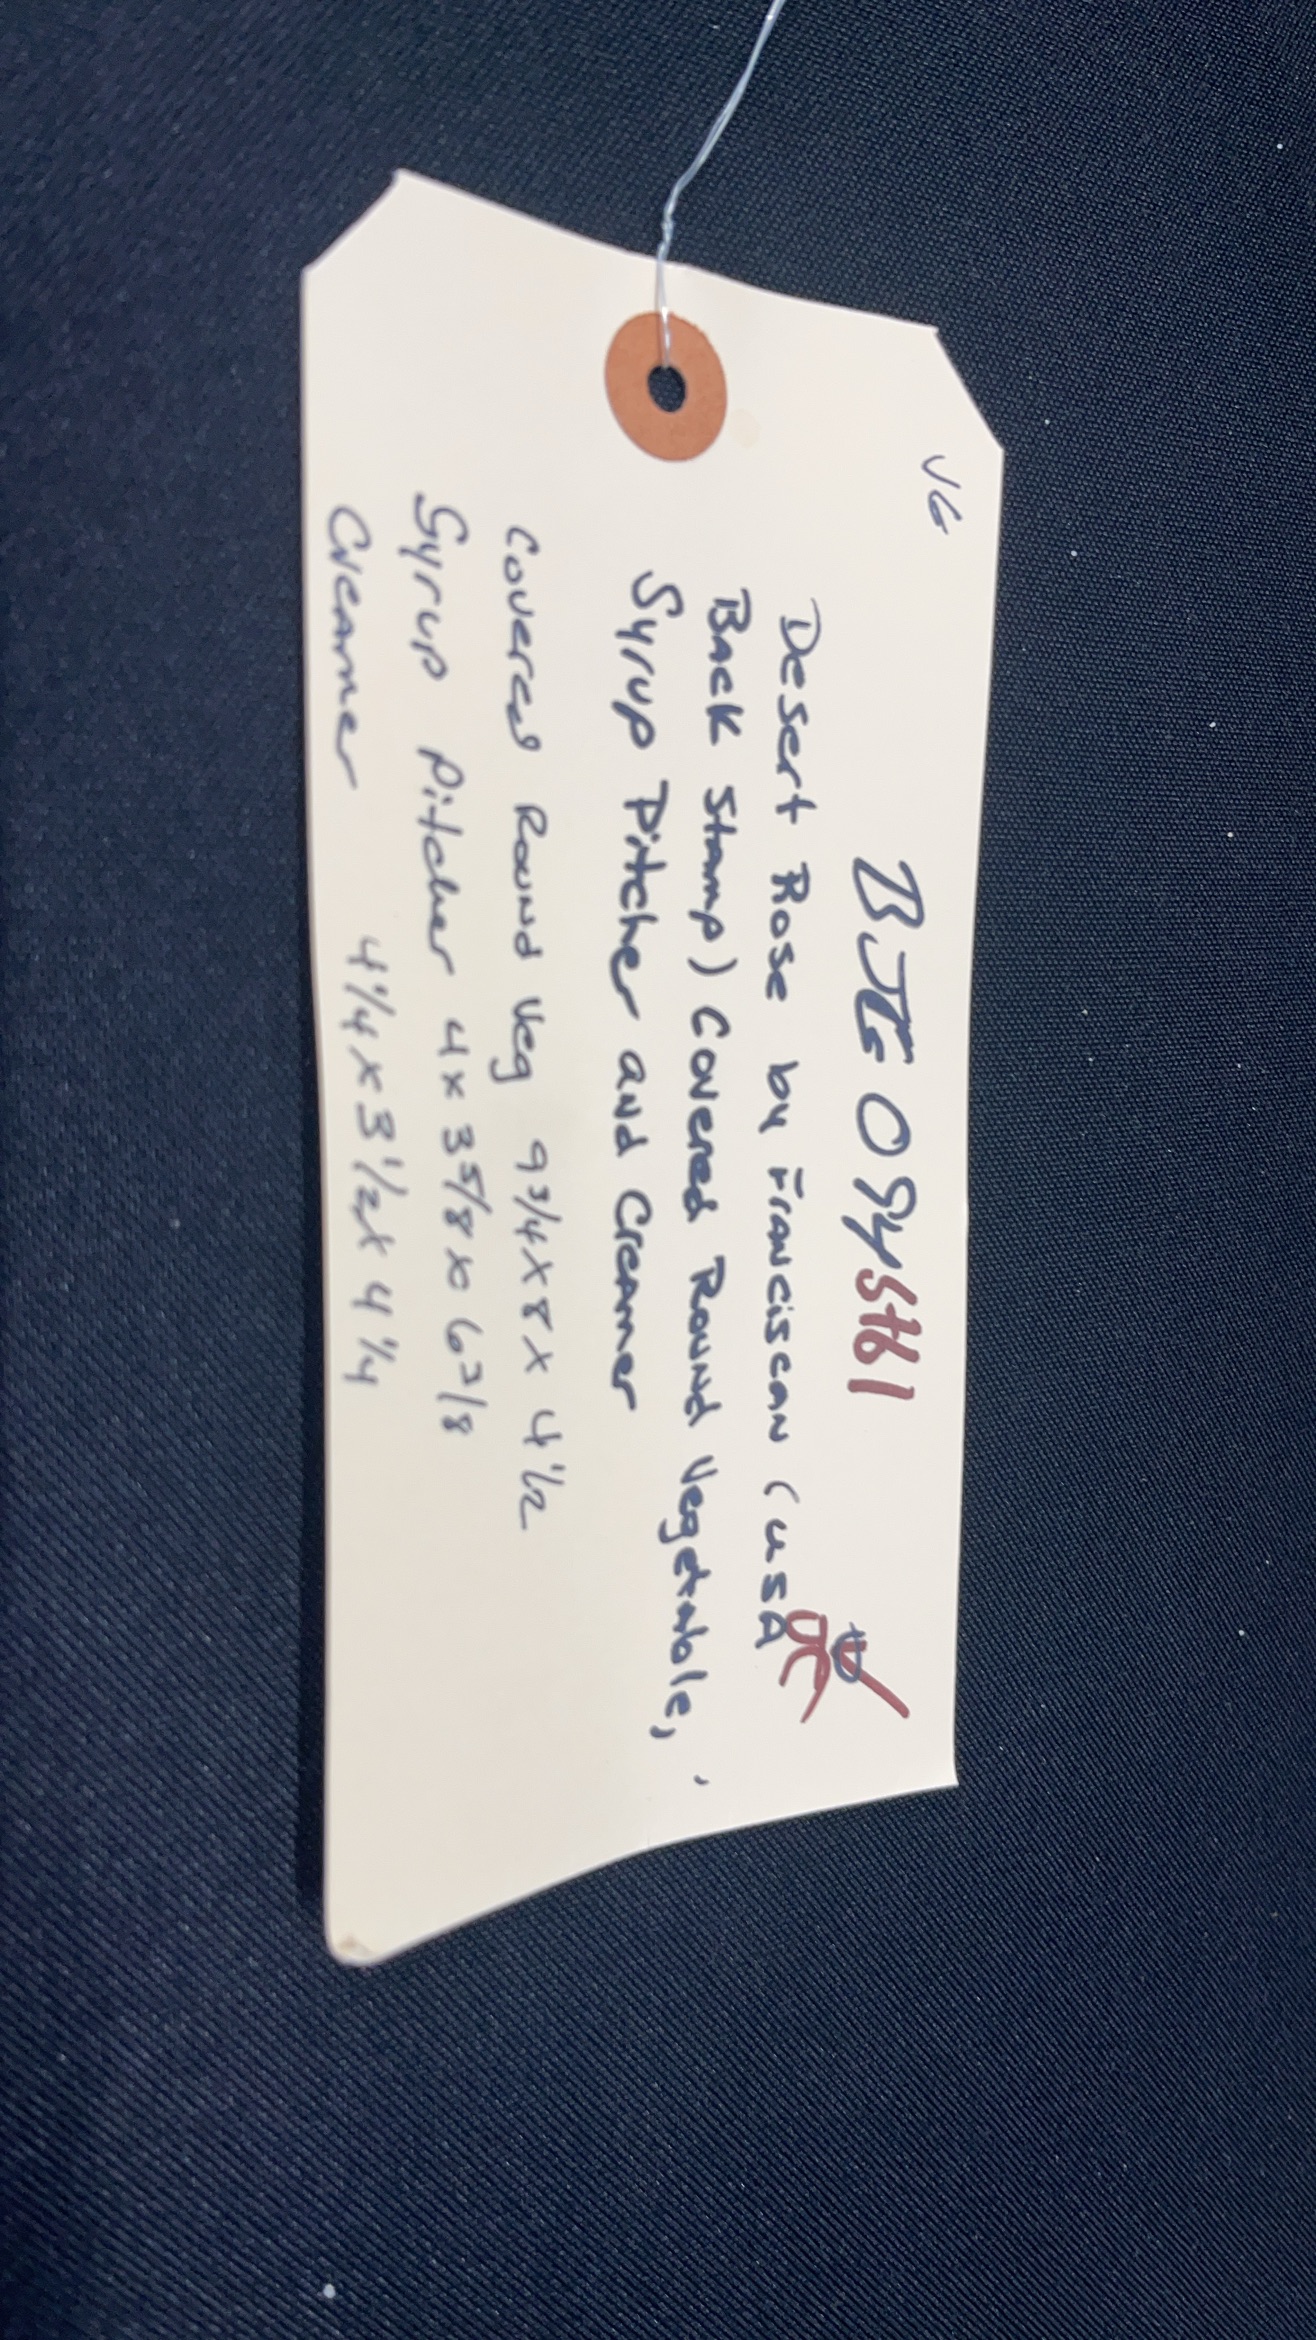 VG
Desert Rose by Franciscan (USA
Back Stamp) Covered Round Vegetable,
Syrup Pitcher and Creamer
Covered Round Veg 9 3/4 x 8 x 4 1/2
Syrup Pitcher 4 x 3 5/8 x 6
Creamer 4 1/4 x 3 1/2 x 4 1/4